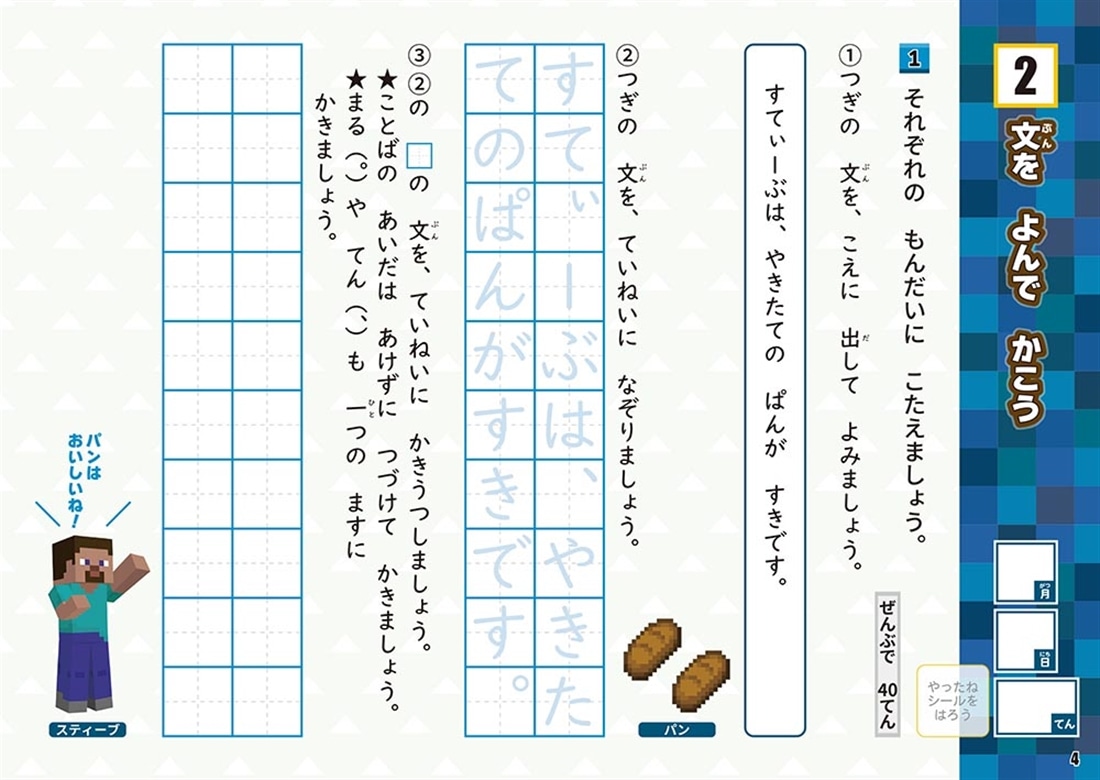 2
文を よんで かこう
ぶん
月
がつ
日
にち
てん
1 それぞれの もんだいに こたえましょう。
ぜんぶで 40てん
やったね
シールを
はろう
①つぎの 文を、こえに 出して よみましょう。
ぶん
だ
すてぃーぶは、やきたての ぱんが すきです。
②つぎの 文を、ていねいに なぞりましょう。
ぶん
パン
すてぃーぶは、やきた
てのぱんがすきです。
③②の □の 文を、ていねいに かきうつしましょう。
ぶん
★ことばの あいだは あけずに つづけて かきましょう。
★まる(。)や てん(、)も 一つの ますに
ひと
かきましょう。
パンは
おいしいね!
スティーブ
4